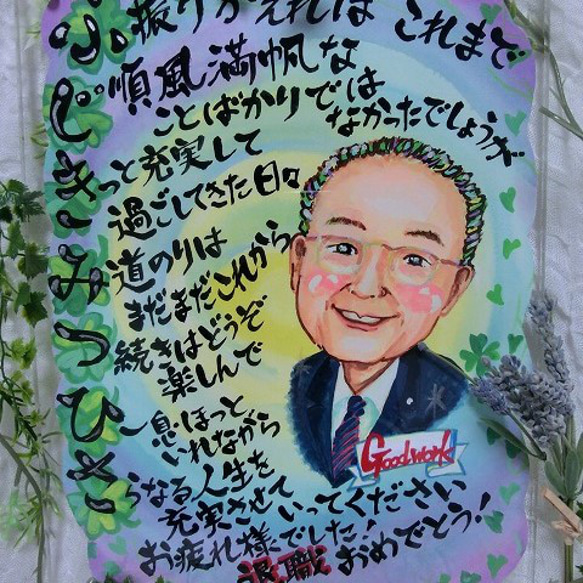 ふじきみつひさ
振りかえれば これまで
順風満帆な
ことばかりでは
なかったでしょうが
っと充実して
過ごしてきた日々
道のりは
まだまだこれから
続きはどうぞ
楽しんで
一息ほっと
いれながら
らなる人生を
充実させていってください
お疲れ様でした!
退職おめでとう!
Good work